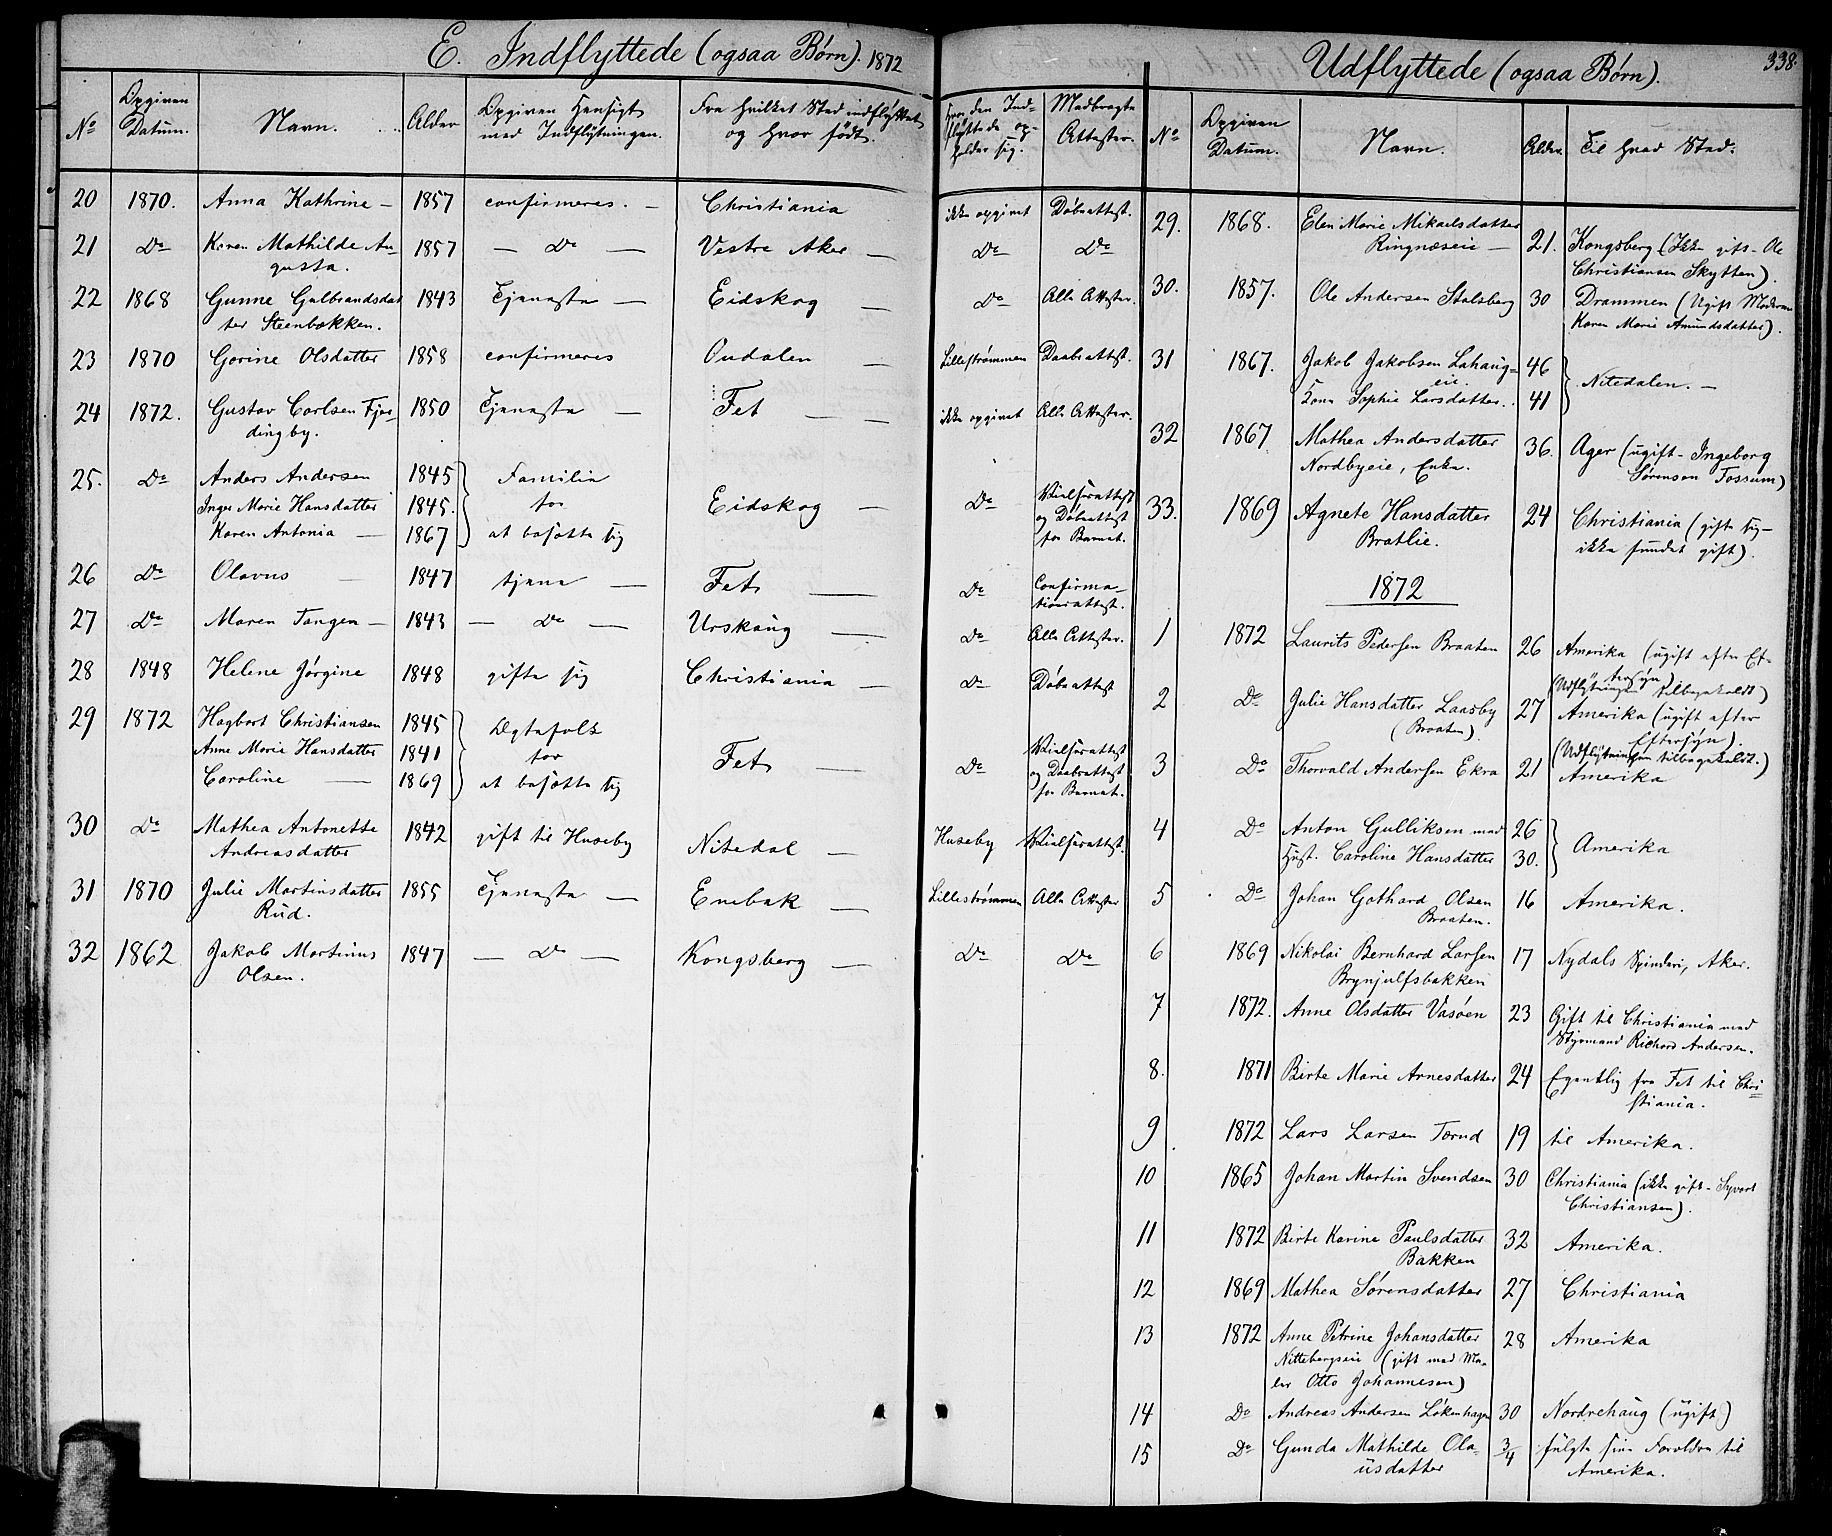 E. Indflyttede (ogsaa Børn). 1872
No Opgiven Datum. Navn. Alder Opgiven Hensigt med Indflytningen. Fra hvilket Sted indflyttet og hvor født. Hvor den Indflyttede opholder sig. Medbragte Attester.
20 1870. Anna Kathrine – 1857 confirmeres. – Christiania ikke opgivet Døbsattest.
21 Do Karen Mathilde Au-
gusta. 1857 – Do – Vestre Aker – Do Do
22 1868 Gunne Gulbrandsdat
ter Steenbækken. 1843 Tjeneste – Eidskog – Do Alle Attester.
23 1870 Gorine Olsdatter 1858 confirmeres Oudalen – Lillestrømmen Daabsattest.
24 1872. Gustav Carlsen Fjel-
dingby. 1850 Tjeneste – Fet – ikke opgivet Alle Attester.
25. Do Anders Andersen 1845 Familie
Inger Marie Hansdatter 1845. for Eidskog – Do Vielsesattest og Døbsattest for Barnet.
Karen Antonia – 1867 at bosætte sig
26 Do Olavus – 1847 tjene – Fet – Do Confirma-
tionsattest.
27 Do Maren Tangen – 1843 – Do – Urskoug – Do Alle Attester.
28 1848 Helene Jørgine 1848 gifte sig Christiania – Do Døbsattest
29 1872 Hagbart Christiansen 1845 Ægtefolk
Anne Marie Hansdatter 1841 for Fet – Do Vielsesattest og Daabsattest for Barnet.
Caroline – 1869 at bosætte sig
30 Do Mathea Antonette
Andreasdatter 1842 gift til Huseby Nitedal – Huseby Vielsesattest.
31 1870 Julie Martinsdatter
Rud. 1855 Tjeneste – Enebak – Lillestrømmen Alle Attester
32 1862 Jakob Martinus
Olsen. 1847 – Do – Kongsberg – Do Do
Udflyttede (ogsaa Børn). 338
No Opgiven Datum. Navn. Alder. Til hvad Sted.
29. 1868. Elen Marie Mikaelsdatter
Ringnæseie – 21. Kongsberg (Ikke gift – Ole
Christiansen Skytten).
30. 1857. Ole Andersen Stalsberg 30 Drammen (Ugift Moderen
Karen Marie Amundsdatter).
31 1867. Jakob Jakobsen Lahaug-
eie. 46
Kone Sophie Larsdatter. 41 Nitedalen. –
32 1867 Mathea Andersdatter
Nordbyeie, Enke. 36. Ager (ugift – Ingeborg
Sørensen Fossum)
33. 1869 Agnete Hansdatter
Bratlie. 24 Christiania (gifte sig –
ikke fundet gift).
1872
1 1872 Laurits Pedersen Braaten 26 Amerika (ugift efter Ef-
tersyn)
(Udflytningen tilbagekaldt)
2 Do Julie Hansdatter Laasby
(Braaten) 27 Amerika (ugift efter
Eftersyn).
(Udflytningen tilbagekaldt.)
3 Do Thorvald Andersen Ekra 21 Amerika
4 Do Anton Gulliksen med 26
Hust. Caroline Hansdatter 30. Amerika
5 Do Johan Gothard Olsen
Braaten. 16 Amerika.
6 1869 Nikolai Bernhard Larsen
Brynjulfsbakken 17 Nydals Spinderi, Aker.
7 1872. Anne Olsdatter Vasøen 23 Gift til Christiania med
Styrmand Richard Andersen.
8. 1871 Birte Marie Arnesdatter 24 Egentlig fra Fet til Chri-
stiania.
9 1872 Lars Larsen Torud 19 til Amerika.
10 1865 Johan Martin Svendsen 30 Christiania (ikke gift – Syvert
Christiansen).
11 1872 Birte Karine Paulsdatter
Bakken 32 Amerika.
12 1869 Mathea Sørensdatter 27 Christiania
13 1872 Anne Petrine Johansdatter 28 Amerika
Nittebergseie (gift med Ma-
ler Otto Johannesen)
14 Do Andreas Andersen Løkenhagen 30 Nordrehaug (ugift)
15 Do Gunda Mathilde Ola-
usdatter 3/4 fulgte sine Forældre til
Amerika.